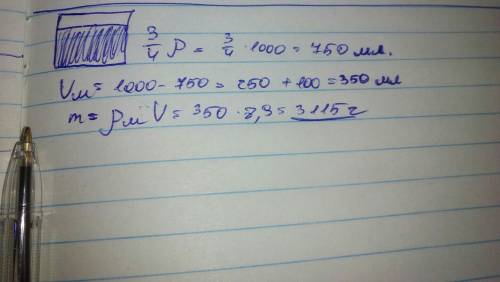 3/4 ρ = 3/4 · 1000 = 750 мл.
Vм = 1000 - 750 = 250 + 100 = 350 мл
m = ρм V = 350 · 8,9 = 3115 г